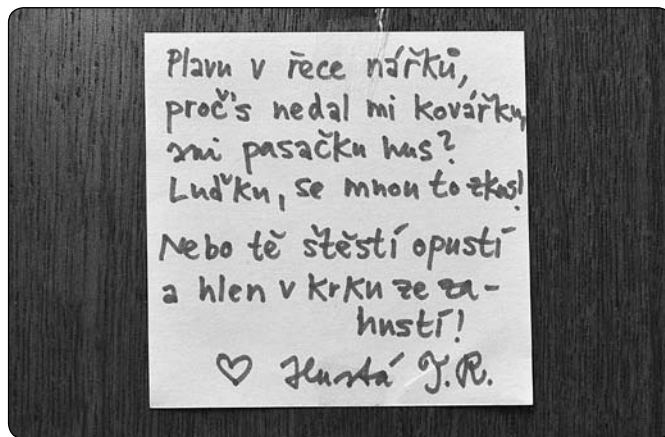 Plavu v řece nářků,
proč's nedal mi kovářku,
ani pasačku hus?
Luďku, se mnou to zkus!
Nebo tě štěstí opustí
a hlen v krku ze za-
hustí!
♡ Hustá J.R.